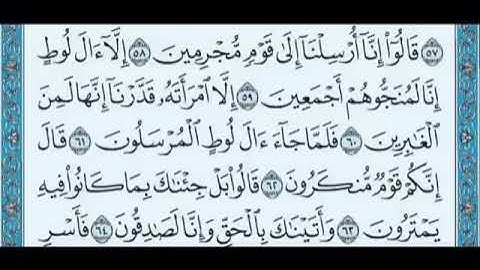 ٥٧ قَالُوٓا۟ إِنَّآ أُرْسِلْنَآ إِلَىٰ قَوْمٍ مُّجْرِمِينَ ٥٨ إِلَّآ ءَالَ لُوطٍ
إِنَّا لَمُنَجُّوهُمْ أَجْمَعِينَ ٥٩ إِلَّا ٱمْرَأَتَهُۥ قَدَّرْنَآ إِنَّهَا لَمِنَ
ٱلْغَـٰبِرِينَ ٦٠ فَلَمَّا جَآءَ ءَالَ لُوطٍ ٱلْمُرْسَلُونَ ٦١ قَالَ
إِنَّكُمْ قَوْمٌ مُّنكَرُونَ ٦٢ قَالُوا۟ بَلْ جِئْنَـٰكَ بِمَا كَانُوا۟ فِيهِ
يَمْتَرُونَ ٦٣ وَأَتَيْنَـٰكَ بِٱلْحَقِّ وَإِنَّا لَصَـٰدِقُونَ ٦٤ فَأَسْرِ